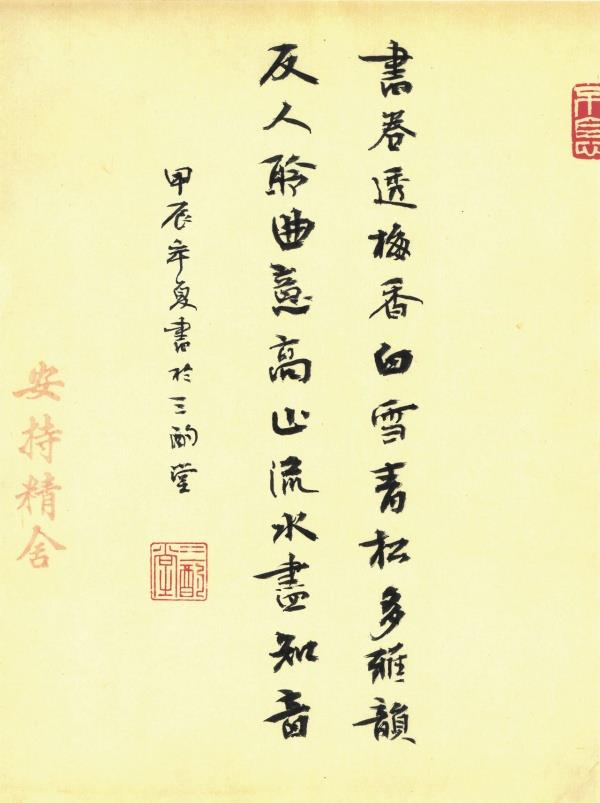 書卷透梅香白雪青松多雅韻
友人聆曲意高山流水盡知音
甲辰年夏書於三酌堂
三酌堂
安持精舍